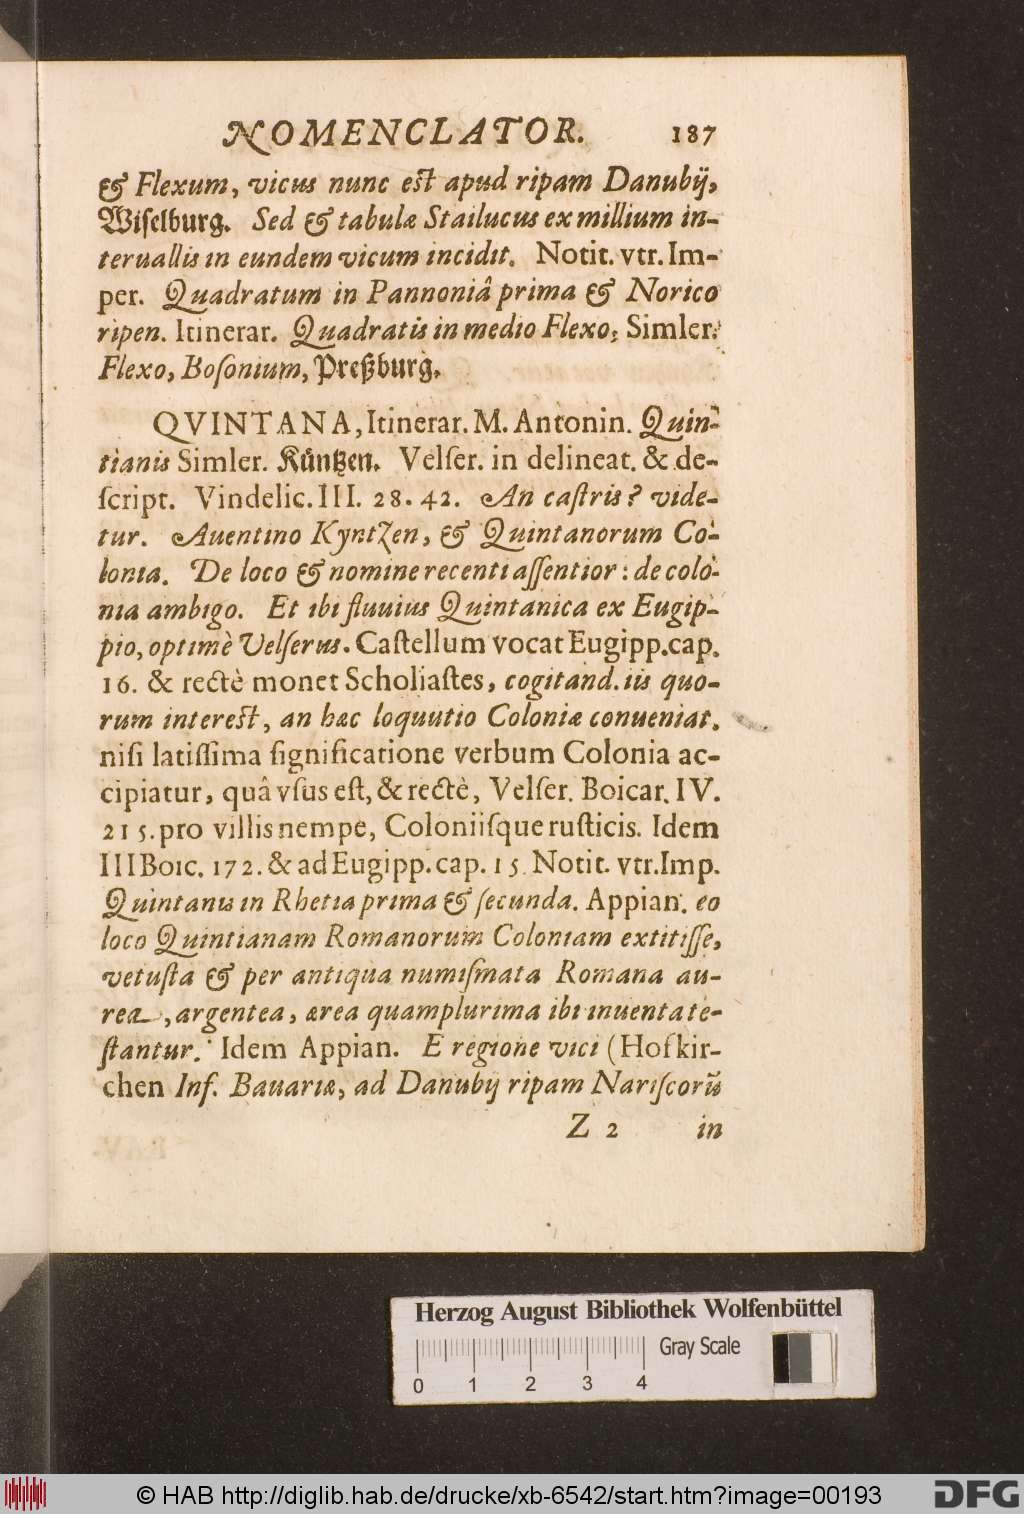 NOMENCLATOR. 187
& Flexum, vicus nunc est apud ripam Danubij,
Wiſelburg. Sed & tabulæ Stailucus ex millium in-
teruallis in eundem vicum incidit. Notit. vtr. Im-
per. Quadratum in Pannoniâ prima & Norico
ripen. Itinerar. Quadratis in medio Flexo; Simler.
Flexo, Boſonium, Preßburg.
QVINTANA, Itinerar. M. Antonin. Quin-
tianis Simler. Küntzen. Velſer. in delineat. & de-
ſcript. Vindelic. III. 28. 42. An caſtris? vide-
tur. Auentino Kyntzen, & Quintanorum Co-
lonia. De loco & nomine recenti aſſentior: de colo-
nia ambigo. Et ibi fluuius Quintanica ex Eugip-
pio, optimè Velſerus. Caſtellum vocat Eugipp. cap.
16. & rectè monet Scholiaſtes, cogitand. iis quo-
rum interest, an hæc loquutio Coloniæ conueniat.
niſi latiſſima ſignificatione verbum Colonia ac-
cipiatur, quâ vſus eſt, & rectè, Velſer. Boicar. IV.
215. pro villis nempe, Coloniiſque ruſticis. Idem
III Boic. 172. & ad Eugipp. cap. 15. Notit. vtr. Imp.
Quintanis in Rhetia prima & ſecunda. Appian. eo
loco Quintianam Romanorum Coloniam extitiſſe,
vetuſta & per antiqua numiſmata Romana au-
rea, argentea, ærea quamplurima ibi inuenta te-
ſtantur. Idem Appian. E regione vici (Hofkir-
chen Inf. Bauariæ, ad Danubij ripam Nariſcorũ
Z 2 in
Herzog August Bibliothek Wolfenbüttel
Gray Scale
0 1 2 3 4
© HAB http://diglib.hab.de/drucke/xb-6542/start.htm?image=00193
DFG